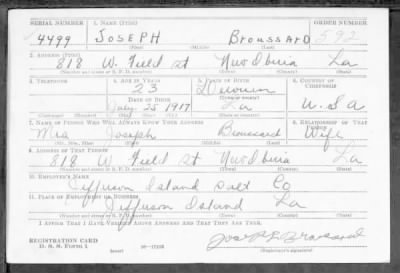 SERIAL NUMBER 1. NAME (Print) ORDER NUMBER
4499 JOSEPH BROUSSARD 592
(First) (Middle) (Last)
2. ADDRESS (Print)
818 W. Field St New Iberia La
(Number and street or R. F. D. number) (Town) (County) (State)
3. TELEPHONE 4. AGE IN YEARS 5. PLACE OF BIRTH 6. COUNTRY OF CITIZENSHIP
23
DATE OF BIRTH (Town or county)
July 25 1917 La U.S.A
(Exchange) (Number) (Mo.) (Day) (Yr.) (State or country)
7. NAME OF PERSON WHO WILL ALWAYS KNOW YOUR ADDRESS 8. RELATIONSHIP OF THAT PERSON
Mrs Joseph Broussard Wife
(Mr., Mrs., Miss) (First) (Middle) (Last)
9. ADDRESS OF THAT PERSON
818 W Field St New Iberia La
(Number and street or R. F. D. number) (Town) (County) (State)
10. EMPLOYER'S NAME
Jefferson Island Salt Co
11. PLACE OF EMPLOYMENT OR BUSINESS
Jefferson Island La
(Number and street or R. F. D. number) (Town) (County) (State)
I AFFIRM THAT I HAVE VERIFIED ABOVE ANSWERS AND THAT THEY ARE TRUE.
REGISTRATION CARD
D. S. S. Form 1 (over) 16—17105 (Registrant's signature)